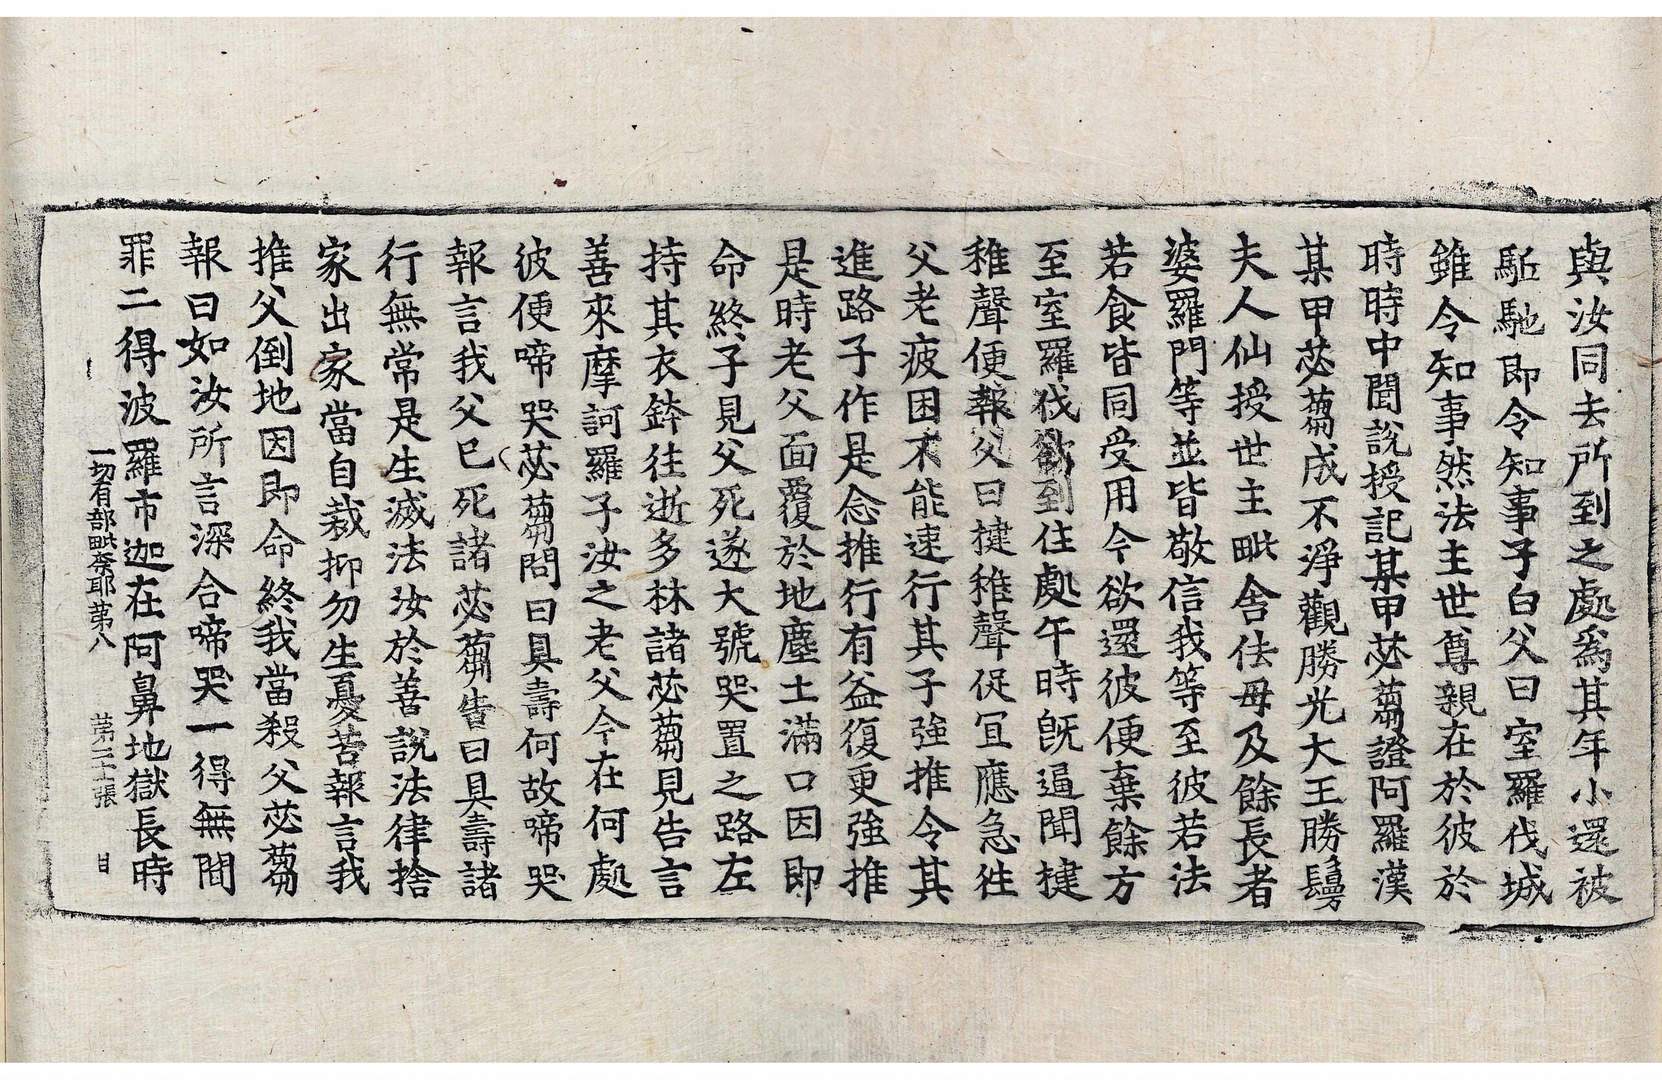 與汝同去所到之處爲其年小還被
駈馳即令知事子白父曰室羅伐城
雖令知事然法主世尊親在於彼於
時時中聞說授記某甲苾蒭證阿羅漢
某甲苾蒭成不淨觀勝光大王勝鬘
夫人仙授世主毗舍佉母及餘長者
婆羅門等並皆敬信我等至彼若法
若食皆同受用今欲還彼便棄餘方
至室羅伐欲到住處午時旣逼聞揵
稚聲便報父曰揵稚聲促宜應急徃
父老疲困不能速行其子強推令其
進路子作是念推行有益復更強推
是時老父面覆於地塵土滿口因即
命終子見父死遂大號哭置之路左
持其衣鉢往逝多林諸苾蒭見告言
善來摩訶羅子汝之老父今在何處
彼便啼哭苾蒭問曰具壽何故啼哭
報言我父已死諸苾蒭告曰具壽諸
行無常是生滅法汝於善說法律捨
家出家當自裁抑勿生憂苦報言我
推父倒地因即命終我當殺父苾蒭
報曰如汝所言深合啼哭一得無間
罪二得波羅市迦在阿鼻地獄長時
一切有部毗奈耶第八 第二十張 目